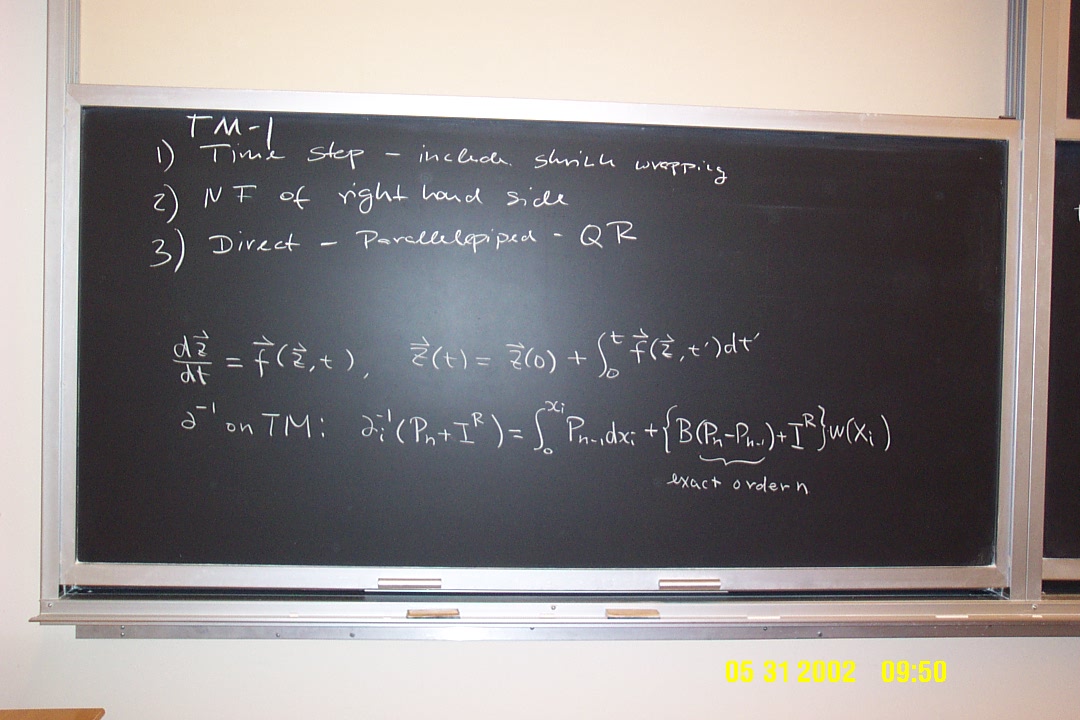 TM-1
1) Time step - include shrink wrapping
2) NF of right hand side
3) Direct - Parallelepiped - QR
dz⃗/dt = f⃗(z⃗,t), z⃗(t) = z⃗(0) + ∫₀ᵗ f⃗(z⃗,t′)dt′
∂⁻¹ on TM: ∂ᵢ⁻¹(Pₙ+Iᴿ) = ∫₀^xᵢ Pₙ₋₁dxᵢ + {B(Pₙ-Pₙ₋₁)+Iᴿ}w(xᵢ)
exact order n
05 31 2002 09:50